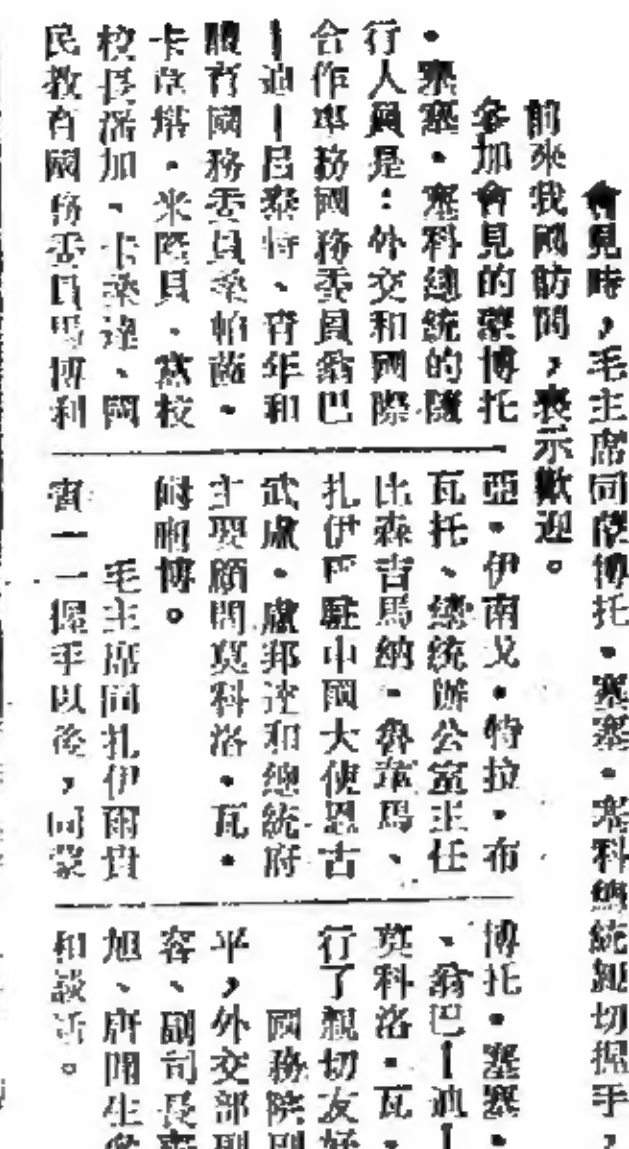 會見時，毛主席同蒙博托·塞塞·塞科總統親切握手，
前來我國訪問，表示歡迎。
參加會見的蒙博托
·塞塞·塞科總統的隨
行人員是：外交和國際
合作事務國務委員翁巴
—迪—呂泰特、青年和
體育國務委員桑帕薩·
卡韋塔·米隆貝、黨校
校長濟加、卡桑達、國
民教育國務委員馬博利
亞·伊南戈·特拉·布
瓦托、總統辦公室主任
比森吉馬納·魯韋馬、
扎伊爾駐中國大使恩古
武盧·盧邦達和總統府
主要顧問莫科洛·瓦·
博。
毛主席同扎伊爾貴
賓一一握手以後，同蒙
博托·塞塞·
、翁巴—迪—
莫科洛·瓦·
行了親切友好
國務院副
平，外交部副
客、副司長
旭、唐聞生
和談話。